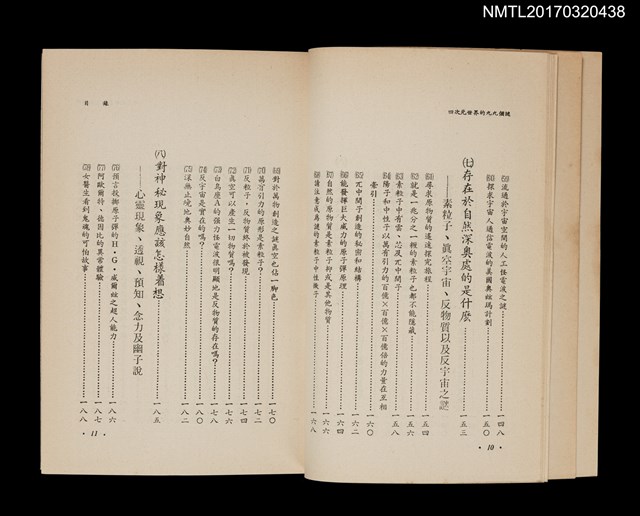 NMTL20170320438
四次元世界的九九個謎
流過於宇宙空間的人工怪電波之謎……一四八
探求宇宙人通信電波的美國奧茲瑪計劃……一五〇
(七)存在於自然深奧處的是什麼……一五三
——素粒子、眞空宇宙、反物質以及反宇宙之謎
尋求原物質的遙遠探究旅程……一五四
就是一兆分之一糎的素粒子也都不能隱藏……一五六
素粒子中有雲、芯及π中間子……一五八
陽子和中性子以萬有引力的百億×百億×百億倍的力量在互相
牽引……一六〇
π中間子創造的秘密和結構……一六二
能發揮巨大威力的原子彈原理……一六四
自然的原物質是素粒子抑或是其他物質……一六六
請注意成爲謎的素粒子中性微子……一六八
• 10 •
目錄
對於萬物創造之謎眞空也佔一脚色……一七〇
萬有引力的原形是素粒子?……一七二
反粒子、反物質終於被發現……一七四
眞空可以產生一切物質嗎?……一七六
白鳥座A的强力怪電波很明顯地是反物質的存在嗎?……一七八
反宇宙是實在的嗎?……一八〇
深無止境地奧妙自然……一八二
(八)對神秘現象應該怎樣着想……一八五
——心靈現象、透視、預知、念力及幽子說
預言投擲原子彈的H・G・威爾茲之超人能力……一八六
阿歐爾特、德因比的異常體驗……一八七
女醫生看到鬼魂的可怕故事……一八八
• 11 •